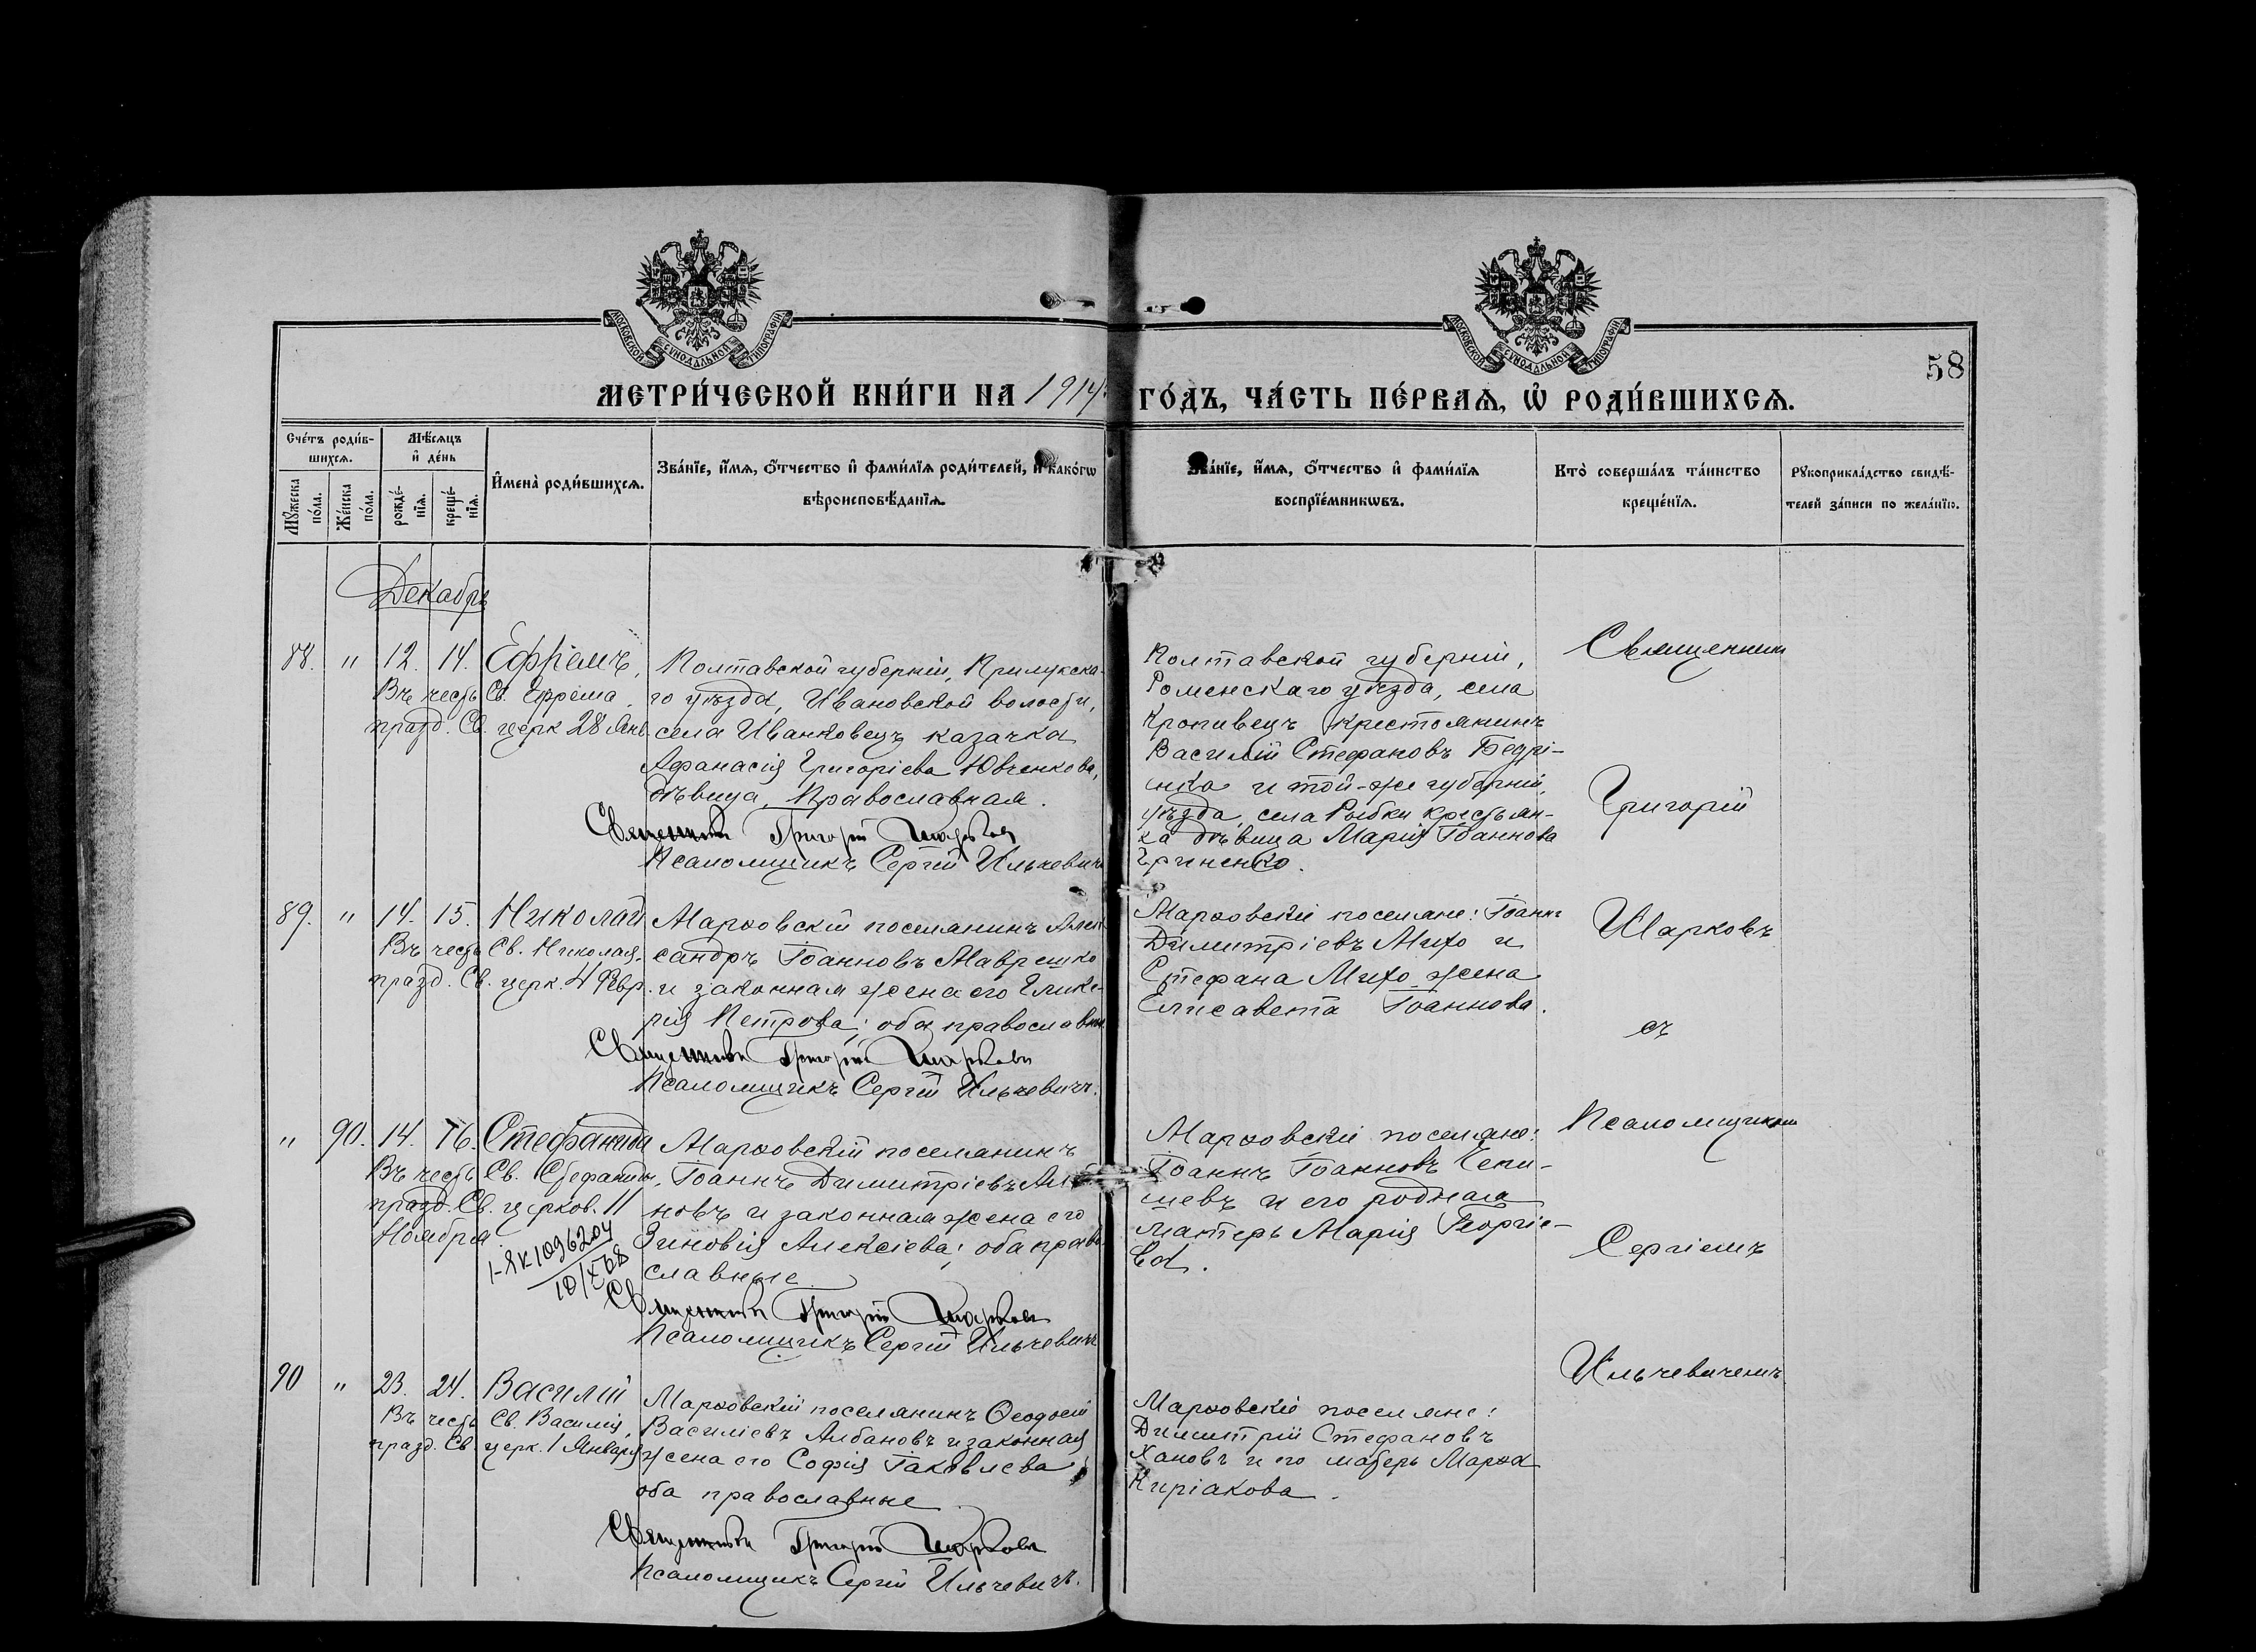 МОСКОВСКОЙ СѴНОДАЛЬНОЙ ТИПОГРАФІИ
МОСКОВСКОЙ СѴНОДАЛЬНОЙ ТИПОГРАФІИ
58
МЕТРИ́ЧЕСКОЙ КНИ́ГИ НА 1914 ГО́ДЪ, ЧА́СТЬ ПЕ́РВАѦ, Ѡ РОДИ́ВШИХСѦ.
Сче́тъ роди́в-
шихсѧ.
Мꙋ́жеска по́ла.
Же́нска по́ла.
Мѣ́сѧцъ
и҆ де́нь
рожде́-нїѧ.
креще́-нїѧ.
И҆мена̀ роди́вшихсѧ.
Зва́нїе, и҆́мѧ, ѻ҆́тчество и҆ фами́лїѧ роди́телей, и҆ како́гѡ
вѣроисповѣ́данїѧ.
Зва́нїе, и҆́мѧ, ѻ҆́тчество и҆ фами́лїѧ
воспрїе́мникѡвъ.
Кто̀ соверша́лъ та́инство
креще́нїѧ.
Рꙋкоприкла́дство свидѣ́-
телей за́писи по жела́нїю.
Декабрь
88. " 12. 14. Ефремъ,
Въ честь Св. Ефрема,
празд. Св. церк 28 Янв.
Полтавской губерніи, Прилукска-
го уѣзда, Ивановской волости,
села Иванковецъ казачка
Афанасія Григоріева Ювченкова,
дѣвица, Православная.
Священникъ Григорій Шарковъ
Псаломщикъ Сергій Ильчевичъ
Полтавской губерніи,
Роменскаго уѣзда, села
Кропивецъ крестьянинъ
Василій Стефановъ Бедрі-
нко и той-же губерніи,
уѣзда, села Рыбки крестьян-
ка дѣвица Марія Іоаннова
Гриненко.
89. " 14. 15. Николай
Въ честь Св. Николая,
празд. Св. церк. 4 Февр.
Марховскій поселянинъ Алек
сандръ Іоанновъ Маврешко
и законная жена его Глике-
рія Петрова; оба православные
Священникъ Григорій Шарковъ
Псаломщикъ Сергій Ильчевичъ.
Марховскіе поселяне: Іоаннъ
Димитріевъ Михо и
Стефана Михо жена
Елисавета Іоаннова.
" 90. 14. 16. Стефанида
Въ честь Св. Стефаниды,
празд. Св. церков. 11
Ноября
I-ЯК 1096204
10/X 68
Марховскій поселянинъ
Іоаннъ Димитріевъ
новъ и законная жена его
Зиновія Алексіева; оба право
славные
Священникъ Григорій Шарковъ
Псаломщикъ Сергій Ильчевичъ
Марховскіе поселяне:
Іоаннъ Іоанновъ Чепи-
шевъ и его родная
матерь Марія Георгіе-
ва.
90 " 23. 24. Василій
Въ честь Св. Василія,
празд. Св. церк. 1 Января
Марховскій поселянинъ Ѳеодосій
Василіевъ Албановъ и законная
жена его Софія Іаковлева;
оба православные
Священникъ Григорій Шарковъ
Псаломщикъ Сергій Ильчевичъ.
Марховскіе поселяне:
Димитрій Стефановъ
Хановъ и его матерь Марха
Киріакова.
Священникъ
Григорій
Шарковъ
съ
Псаломщикомъ
Сергіемъ
Ильчевичемъ